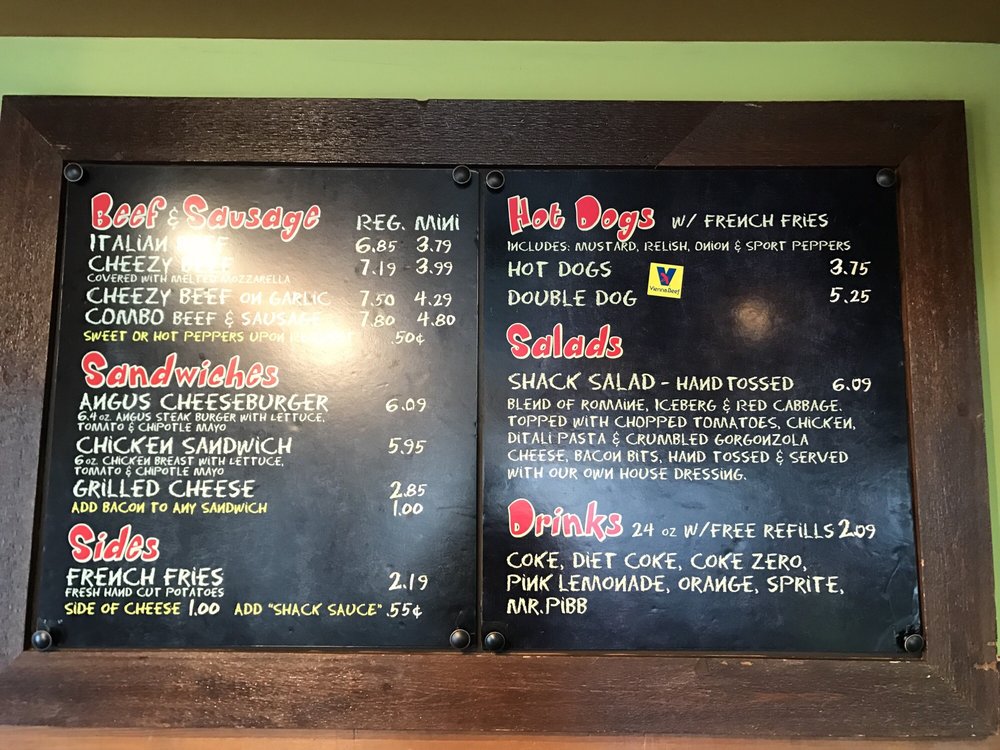 Beef & Sausage REG. MINI
ITALIAN 6.85 3.79
CHEEZY 7.19 3.99
COVERED WITH MELTED MOZZARELLA
CHEEZY BEEF ON GARLIC 7.50 4.29
COMBO BEEF & SAUSAGE 7.80 4.80
SWEET OR HOT PEPPERS UPON .50¢
Sandwiches
ANGUS CHEESEBURGER 6.09
6.4 oz. ANGUS STEAK BURGER WITH LETTUCE,
TOMATO & CHIPOTLE MAYO
CHICKEN SANDWICH 5.95
6 oz. CHICKEN BREAST WITH LETTUCE,
TOMATO & CHIPOTLE MAYO
GRILLED CHEESE 2.85
ADD BACON TO ANY SANDWICH 1.00
Sides
FRENCH FRIES 2.19
FRESH HAND CUT POTATOES
SIDE OF CHEESE 1.00 ADD "SHACK SAUCE" .55¢
Hot Dogs W/ FRENCH FRIES
INCLUDES: MUSTARD, RELISH, ONION & SPORT PEPPERS
HOT DOGS 3.75
Vienna Beef
DOUBLE DOG 5.25
Salads
SHACK SALAD - HAND TOSSED 6.09
BLEND OF ROMAINE, ICEBERG & RED CABBAGE.
TOPPED WITH CHOPPED TOMATOES, CHICKEN,
DITALI PASTA & CRUMBLED GORGONZOLA
CHEESE, BACON BITS, HAND TOSSED & SERVED
WITH OUR OWN HOUSE DRESSING.
Drinks 24 oz W/FREE REFILLS 2.09
COKE, DIET COKE, COKE ZERO,
PINK LEMONADE, ORANGE, SPRITE,
MR.PIBB